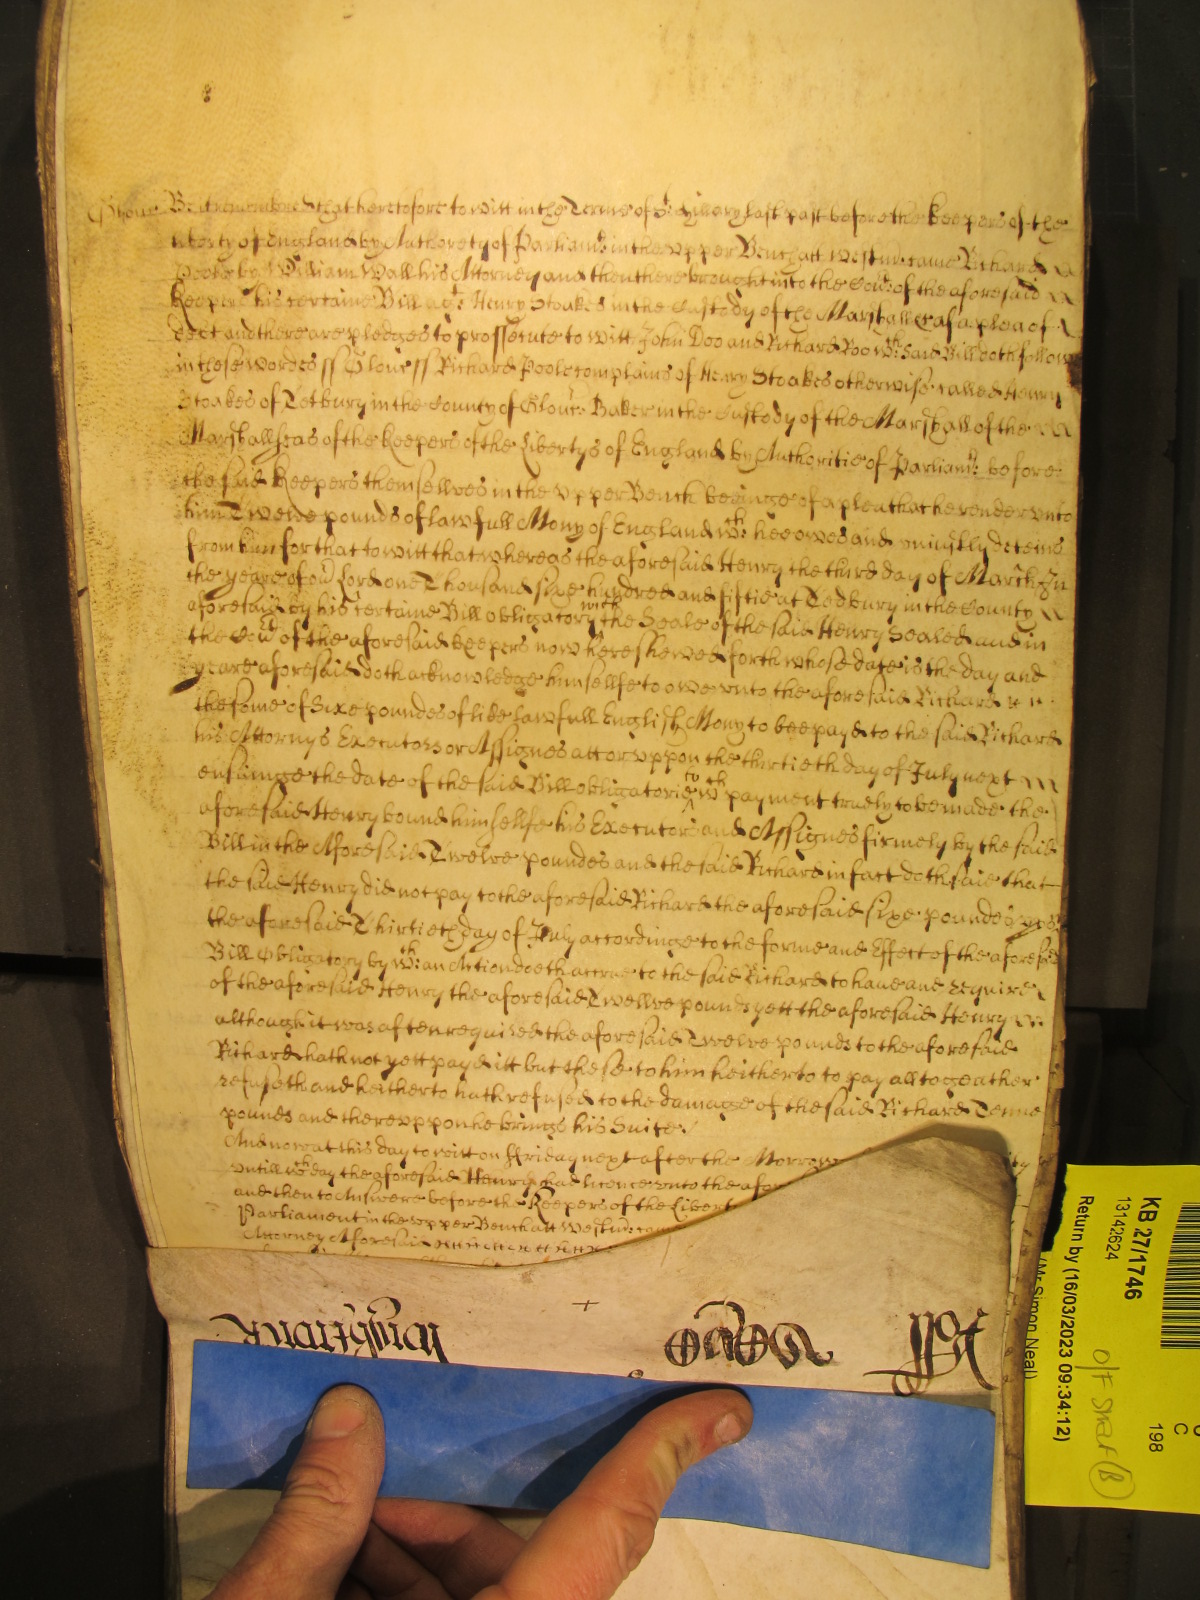 Glouc Be it remembred that heretofore to witt in the Terme of St Hillary last past before the keepers of the
liberty of England by Authorety of Parliamt in the upper Bench att Westmr came Richard
Poole by William Wall his Attorney and then there brought into the Cout of the aforesaid
keepers his certaine Bill agt Henry Stoakes in the Custody of the Marshall &c of a plea of
Debt and there are pledges to prossecute to witt John Doo and Richard Roo wch said Bill doth follow
in these wordes ss Glouc ss Richard Poole complains of Henry Stoakes otherwise called Henry
Stoakes of Tetbury in the County of Glouc Baker in the Custody of the Marshall of the
Marshallseas of the keepers of the Libertys of England by Authoritie of Parliamt before
the said keepers themsellves in the upper Bench beinge of a plea that he render unto
him Twelve pounds of lawfull Mony of England wch hee owes and uniustly deteins
from him for that to witt that whereas the aforesaid Henry the third day of March In
the yeare of our Lord one Thousand sixe hundred and fiftie at Tedbury in the County
aforesaid by his certaine Bill obligatory with the Seale of the said Henry Sealed and in
the Cout of the aforesaid keepers now here shewed forth whose date is the day and
yeare aforesaid doth acknowledge himsellfe to owe unto the aforesaid Richard
the some of Sixe poundes of like lawfull English Mony to bee payd to the said Richard
his Attornys Executors or Assignes att or uppon the thirtieth day of July next
ensuinge the date of the said Bill obligatorie to wch payment truely to be made the
aforesaid Henry bound himsellfe his Executors and Assignes firmely by the said
Bill in the Aforesaid Twelve poundes and the said Richard in fact doth said that
the said Henry did not pay to the aforesaid Richard the aforesaid sixe poundes
the aforesaid Thirtieth day of July accordinge to the forme and Effect of the aforesaid
Bill Obligatory by wch an Action doeth accrue to the said Richard to have and require
of the aforesaid Henry the aforesaid Twellve pounds yett the aforesaid Henry
although it was aften required the aforesaid Twelve pounds to the aforesaid
Richard hath not yett payd itt but these to him heitherto to pay alltogeather
refuseth and heitherto hath refused to the damage of the said Richard Tenne
pounds and thereuppon he brings his Suite
And now at this day to witt on Fryday next after the Morrow
untill wch day the aforesaid Henry had licence unto the
and then to Answere before the Keepers of the
Parliament in the upper Bench att Westmr
Attorney Aforesaid
Rott
KB 27/1746
13142624
Return by (16/03/2023 09:34:12)
(Mr Simon Neal)
198
C
O/F Shelf B